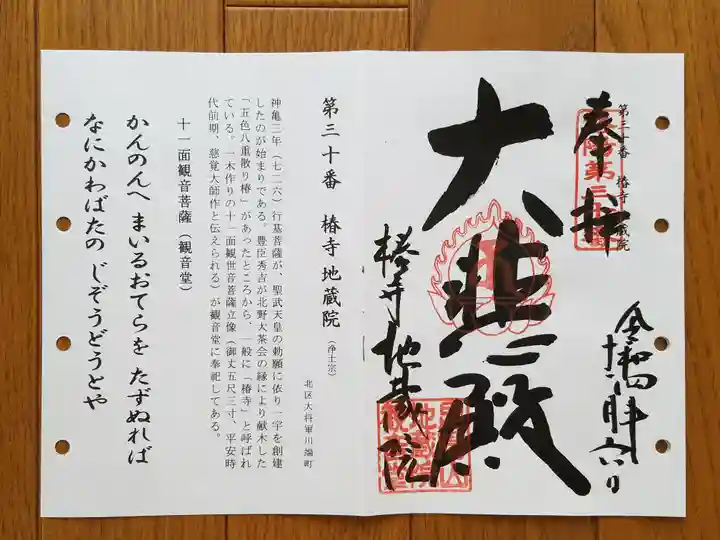 第三十番 椿寺地蔵院
奉拝
大悲殿
椿寺地蔵院
令和四年
十二月六日
第三十番 椿寺地蔵院(浄土宗)
北区大将軍川端町
神亀三年(七二六)行基菩薩が、聖武天皇の勅願に依り一宇を創建
したのが始まりである。豊臣秀吉が北野大茶会の縁により献木した
「五色八重散り椿」があったところから、一般に「椿寺」と呼ばれ
ている。一木作りの十一面観世音菩薩立像(御丈五尺三寸、平安時
代前期、慈覚大師作と伝えられる)が観音堂に奉祀してある。
十一面観音菩薩(観音堂)
かんのんへ まいるおてらを たずぬれば
なにかわばたの じぞうどうとや